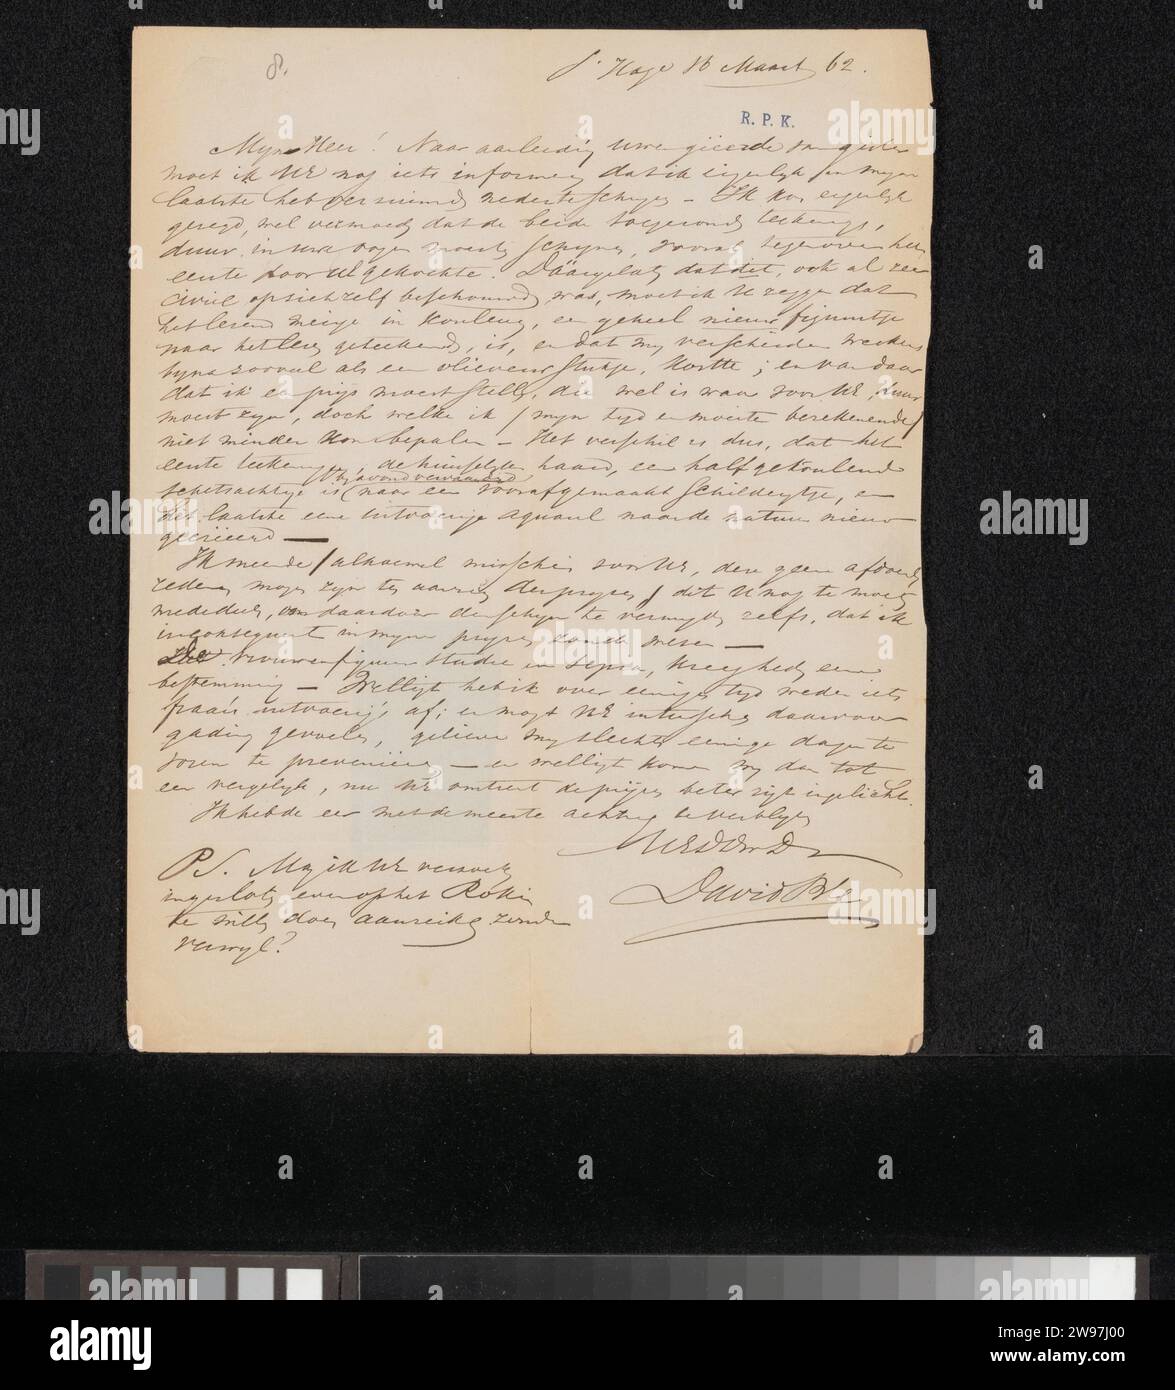 8.
s' Hage 16 Maart 62.
R. P. K.
Mijn Heer! Naar aanleiding uwer geëerde van gister
moet ik UE nog iets informeren dat ik eigenlijk in mijn
laatste het verzuimd neder te schrijven - Ik kon eigenlijk
gezegd, wel vermoeden dat de beide toegezonden teekening,
duur in uwe oogen moest schijnen, vooral tegenover het
eerste door U gekochte. Daargelaten dat dit, ook al zeer
civiel op zich zelf beschouwd, was, moet ik U zeggen dat
het lezend meisje in, een geheel nieuw figuurtje
naar het leven geteekend, is, en dat mij verscheiden werkens
bijna zooveel als een stukje, kostte; en van daar
dat ik een prijs moest stellen, die wel is waar voor UE, duur
moest zijn, doch welke ik / mijn tijd en moeite berekenende /
niet minder kon bepalen - Het verschil is dus, dat het
eerste teekening, de huiselijke haard, een half gekleurd
schetsachtige is (bij avond vervaardigd) naar een vooraf gemaakt schilderijtje, en
het laatste eene uitvoerige aquarel naar de natuur nieuw
gecreëerd —
Ik meende / alhoewel misschien voor UE, deze geen afdoende
redenen mogen zijn ter der prijzen / dit U nog te moeten
mededeelen, om daardoor den schijn te vermijden zelfs, dat ik
inconsequent in mijn prijzen zoude wezen —
De vrouwenfiguur studie in sepia, kreeg reeds eene
bestemming — Welligt heb ik over eenigen tijd weder iets
fraais uitvoerigs af; en mogt UE intusschen daarvoor
gading gevoelen, gelieve mij slechts eenige dagen te
voren te prevenieeren — en welligt komen wij dan tot
een vergelijk, nu UE omtrent de prijzen beter zijt ingelicht.
Ik heb de eer met de meeste achting te verblijven
UWEDDwD
David Bles
PS. Mag ik UE verzoeken
ingesloten even op het Rokin
te willen doen aanreiken zonder
verwijl?
alamy
Image ID: 2W97J00
www.alamy.com